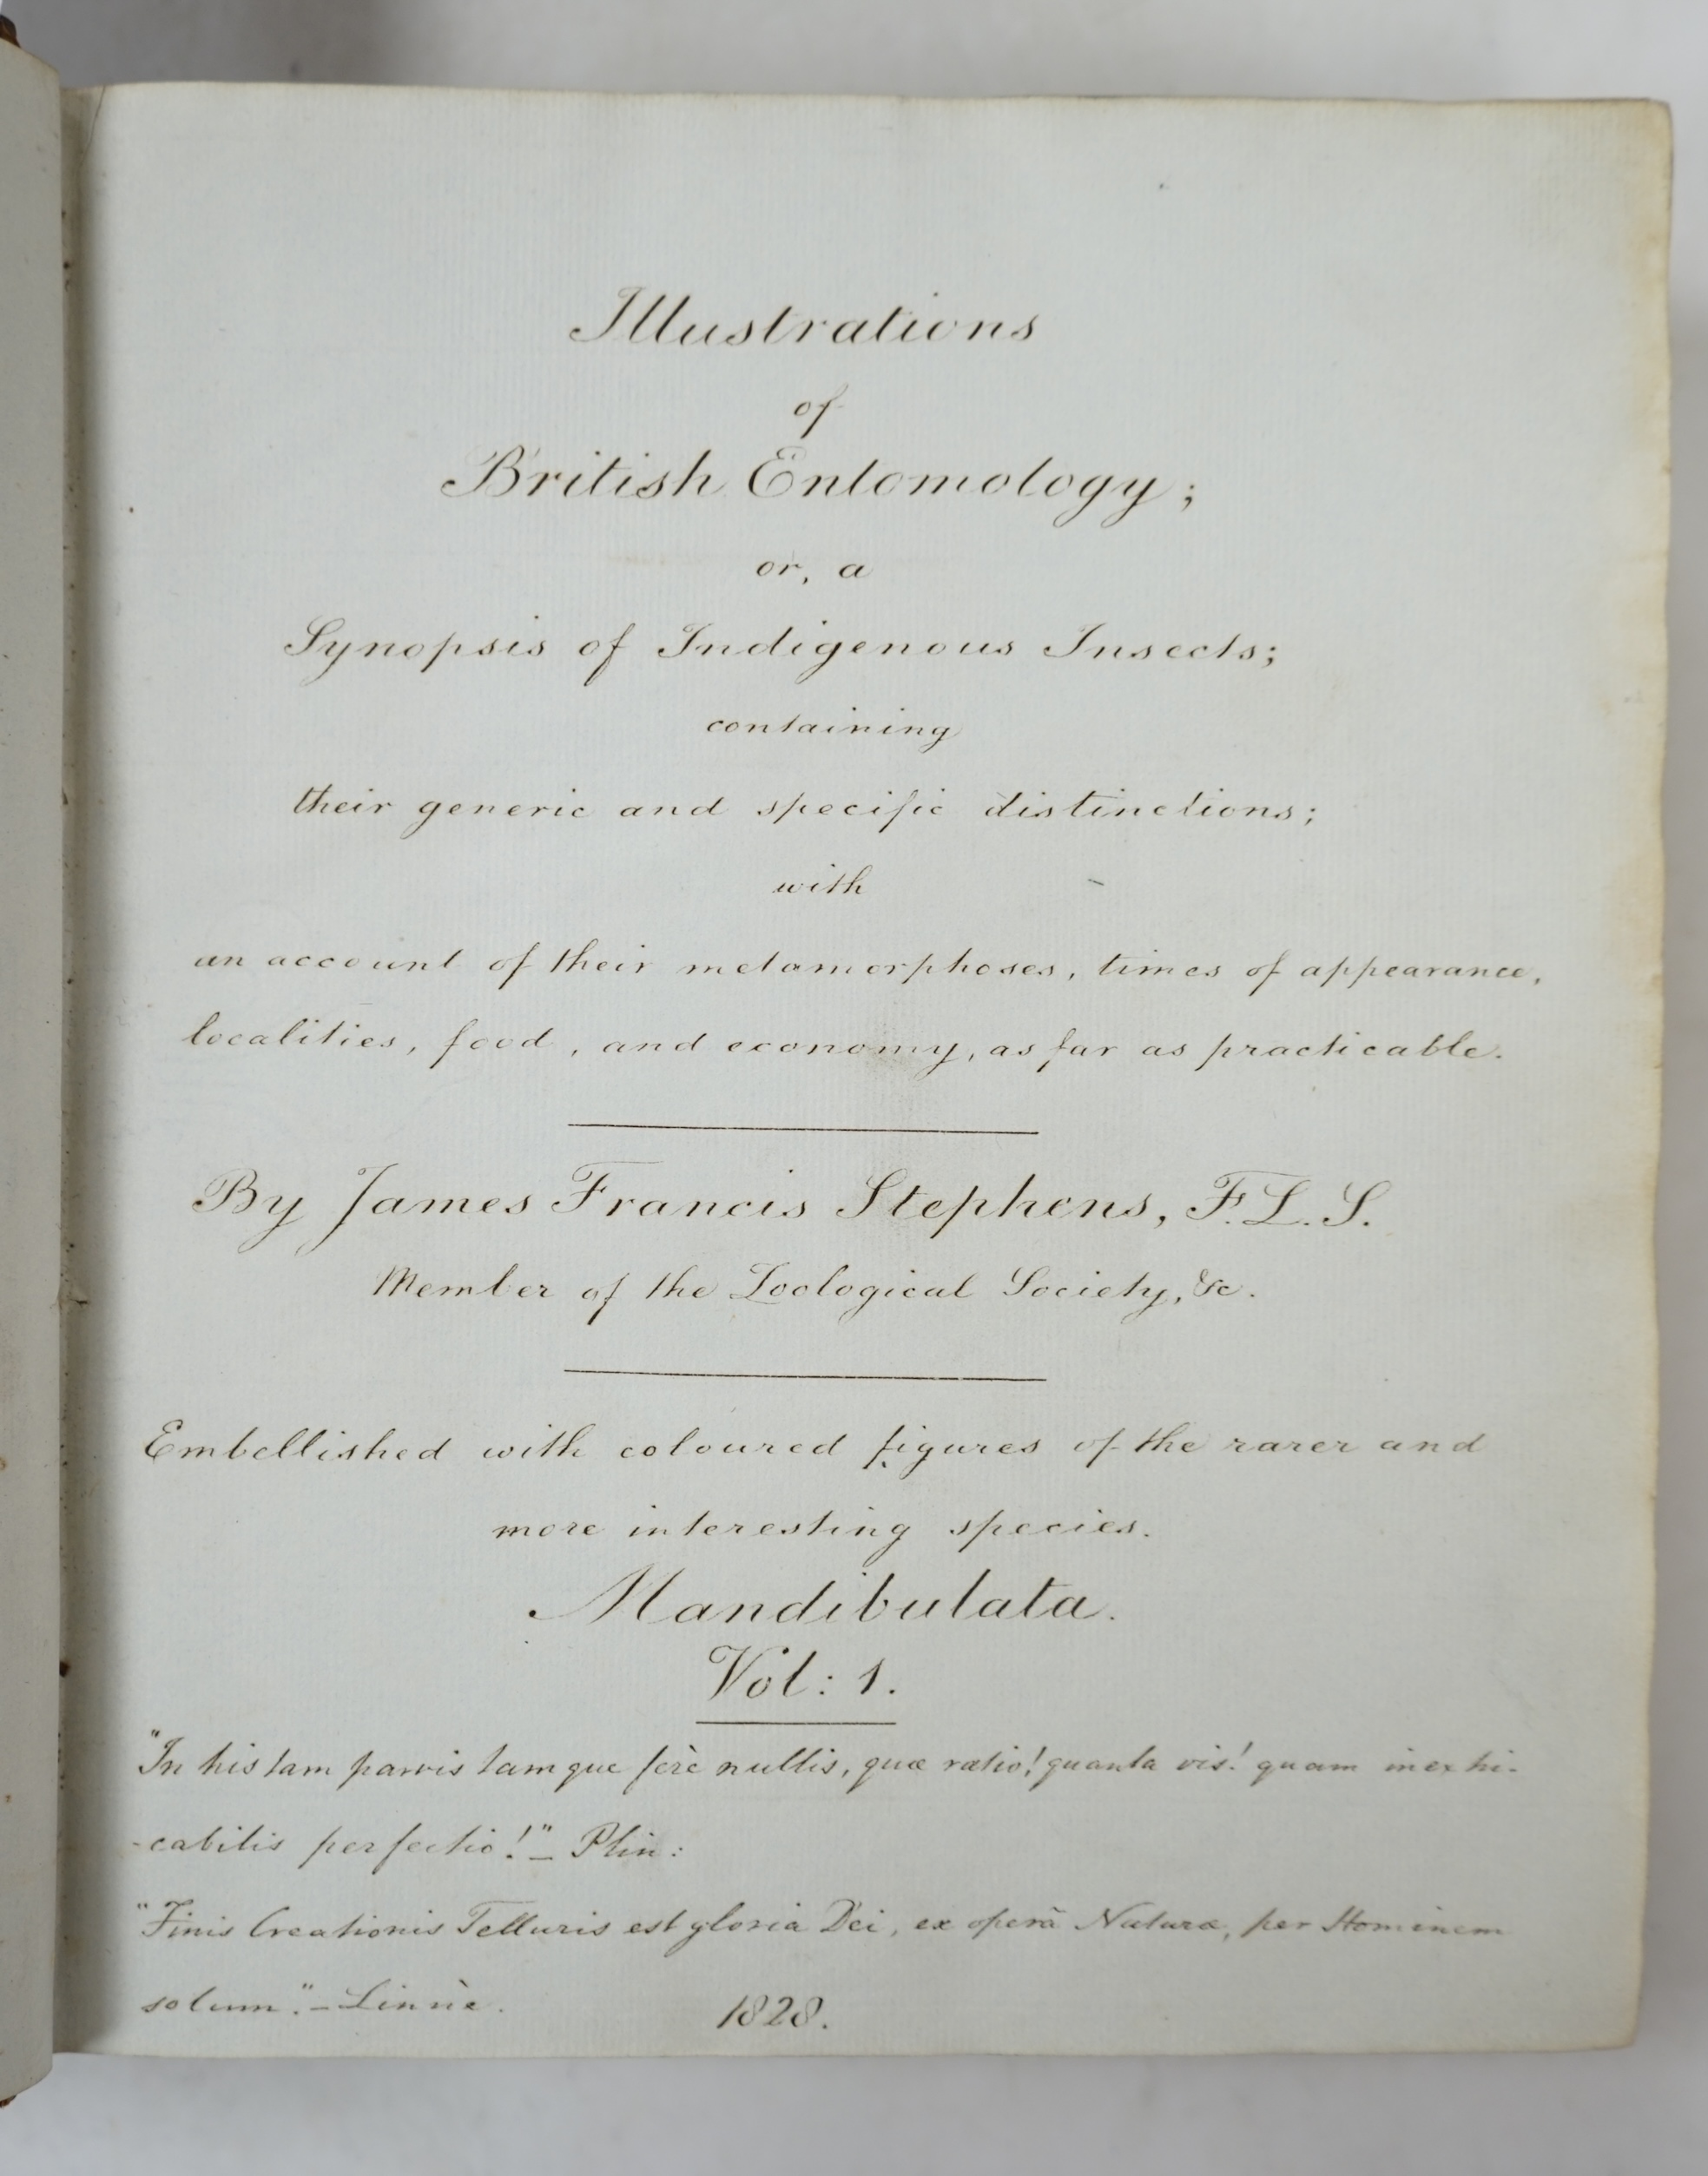 Illustrations
of
British Entomology;
or, a
Synopsis of Indigenous Insects;
containing
their generic and specific distinctions;
with
an account of their metamorphoses, times of appearance,
localities, food, and economy, as far as practicable.
By James Francis Stephens, F.L.S.
Member of the Zoological Society, &c.
Embellished with coloured figures of the rarer and
more interesting species.
Mandibulata.
Vol: 1.
"In his tam parvis tamque ferè nullis, quæ ratio! quanta vis! quam inexhi-
-cabilis perfectio!" – Plin:
"Finis Creationis Telluris est gloria Dei, ex operâ Naturæ, per Hominem
solum". – Linnè.
1828.